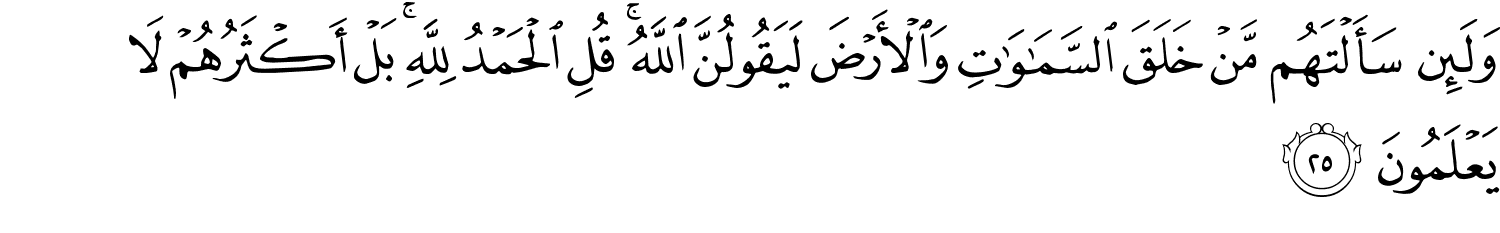 وَلَئِن سَأَلْتَهُم مَّنْ خَلَقَ ٱلسَّمَٰوَٰتِ وَٱلْأَرْضَ لَيَقُولُنَّ ٱللَّهُ ۚ قُلِ ٱلْحَمْدُ لِلَّهِ ۚ بَلْ أَكْثَرُهُمْ لَا
يَعْلَمُونَ ٢٥